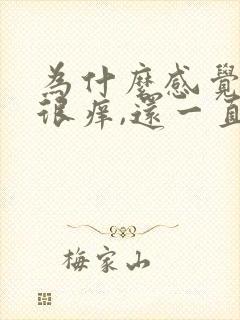 為什麼感覺
很癢,還一直
梅家山